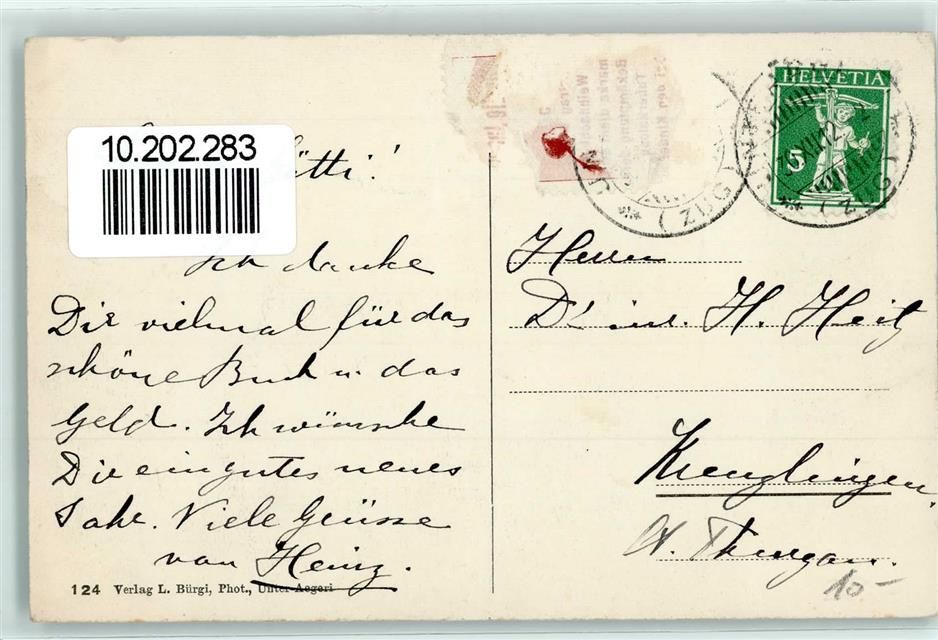 10.202.283
ötti!
Ich danke
Dir vielmal für das
schöne Buch u. das
Geld. Ich wünsche
Dir ein gutes neues
Jahr. Viele Grüsse
von Heinz.
124 Verlag L. Bürgi, Phot., Unter-Aegeri
HELVETIA
5
(ZUG)
(ZUG)
Herrn
Dr. iur. H.
Kreuzlingen
Kt. Thurgau.
10-